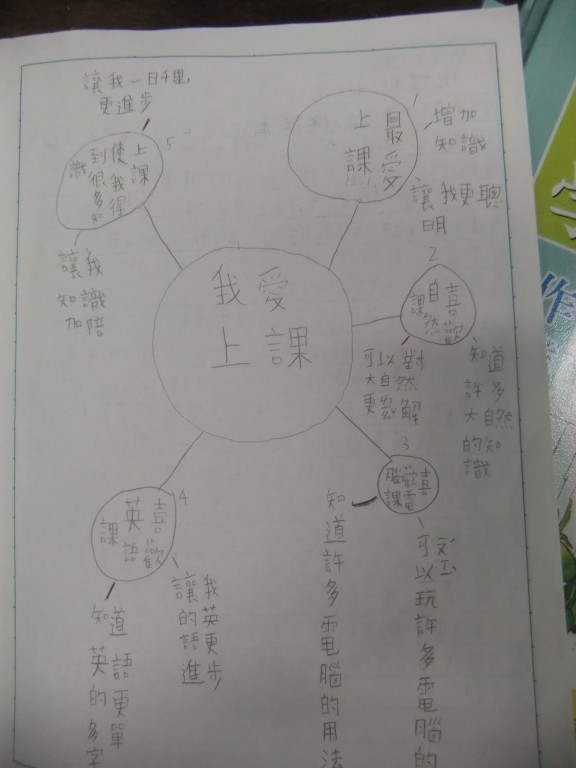 我愛
上課
最愛
上課
增加
知識
讓我更聰
明
2
喜歡
自然
課
知道
許多
大自然
的知
識
可以對
大自然
更解
3
喜
歡電
腦課
知道許多電腦的用法
可以玩許多電腦的
4
喜歡
英語
課
讓我
的英
語更
進步
知道
英語
的更
多單
字
5
上課
使我得
到很多知
識
讓我一日千里,
更進步
讓我
知識
加陪
作